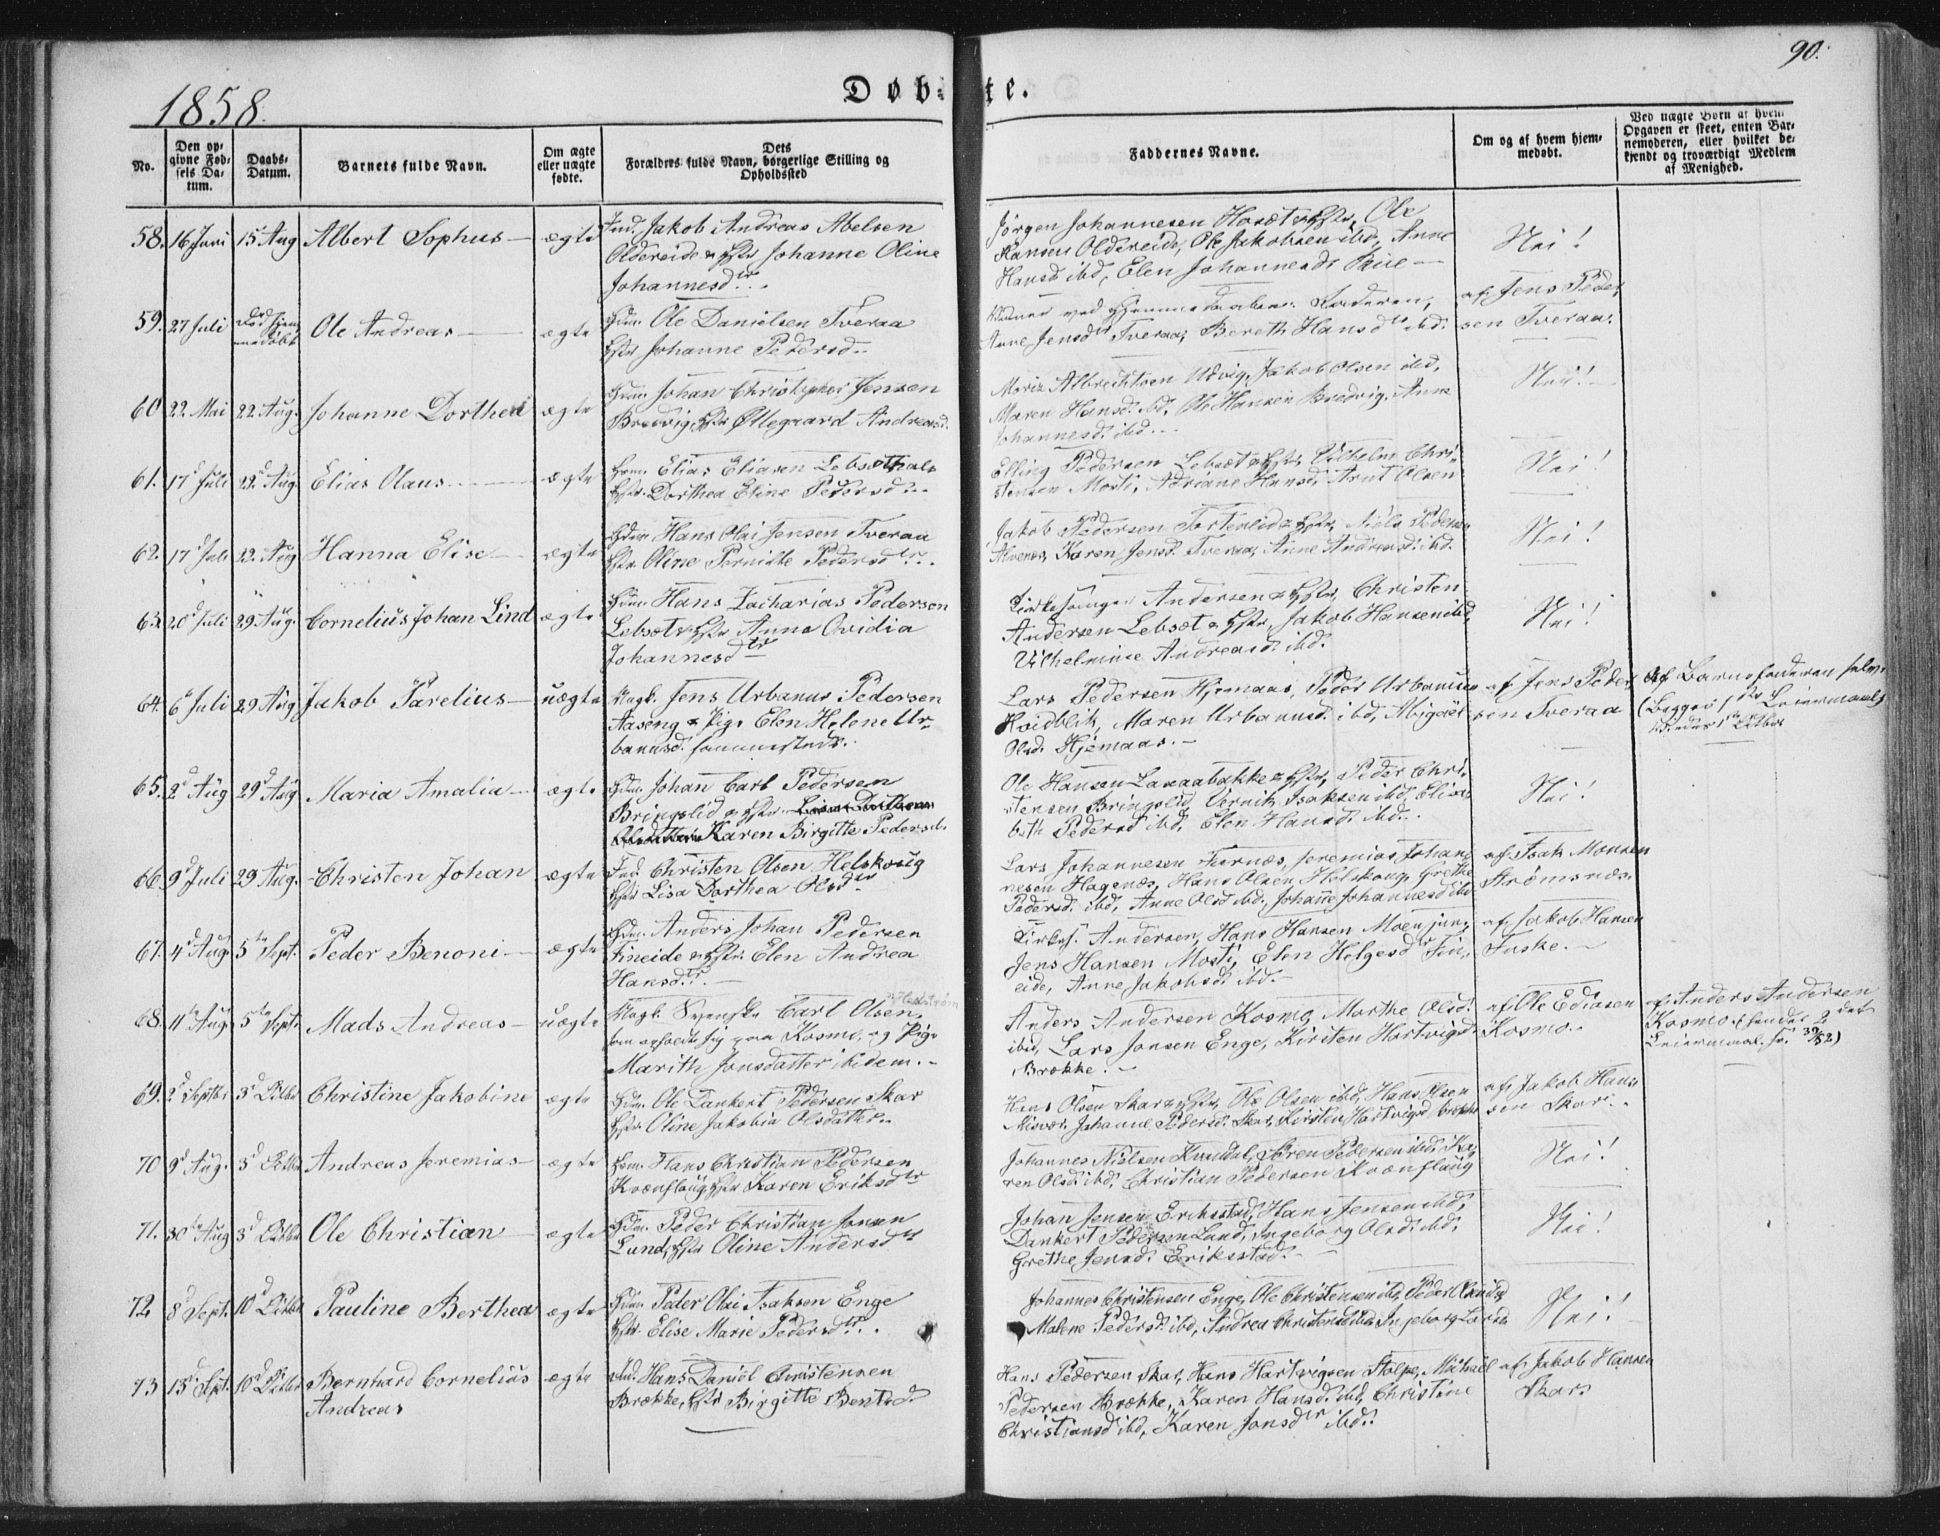 90.
1858.
Døbte.
No.
Den opgivne Fødsels Datum.
Daabs-Datum.
Barnets fulde Navn.
Om ægte eller uægte fødte.
Dets
Forældres fulde Navn, borgerlige Stilling og
Opholdssted
Faddernes Navne.
Om og af hvem hjemmedøbt.
Ved uægte Børn af hvem
Opgaven er skeet, enten Barnemoderen, eller hvilket bekjendt og troværdigt Medlem
af Menighed.
58. 16 Juni 15 Aug Albert Sophus ægte Ind. Jakob Andreas Abelsen
Oldereide & Hstr Johanne Oline
Johannesdtr.
Jørgen Johannesen Hosæt & Hstr, Ole
Hansen Oldereide, Ole Jakobsen ibd, Anne
Hansd ibd, Elen Johannesdr
Nei!
59. 27 Juli Ole Andreas ægte Gdm. Ole Danielsen Tveraa
Hstr Johanne Pedersd.
ved Hjemmedaaben: Faderen,
Anne Jensdtr Tveraa, Bereth Hansdtr ibd.
af Jens Pedersen Tveraa.
60 22 Mai 22 Aug. Johanne Dorthea ægte Johan Christopher Jensen
Bredvig, Hstr Øllegaard Andreasd.
Moriz Albrechtsen Udvig, Jakob Olsen ibd,
Maren Hansd. ibd, Ole Hansen Bredvig, Anne
Johannesd. ibd.
Nei!
61. 17 Juli 22 Aug. Elias Olaus ægte Elias Eliasen Lebsæthals
Hstr Dorthea Eline Pedersd.
Elling Pedersen Lebsæt & Hstr, Vilhelm Christensen Mosti, Adriane Hansd, Arnt Olsen
Nei!
62. 17 Juli 22 Aug Hanna Elise ægte Gdm. Hans Olai Jensen Tveraa
Hstr Oline Pernille Pedersdtr.
Jakob Pedersen & Hstr, Niels Pedersen
Alvenes, Karen Jensd. Tveraa, Anne Andreasd. ibd.
Nei!
63. 20 Juli 29 Aug. Cornelius Johan Lind ægte Gdm. Hans Zacharias Pedersen
Lebsæt & Hstr Anna Ovidia
Johannesdtr
Kirkesanger Andersen & Hstr, Christen
Andersen Lebsæt & Hstr, Jakob Hansen ibd,
Vilhelmine Andreasd. ibd.
Nei!
64. 6 Juli 29 Aug. Jakob Parelius uægte Ungk. Jens Urbanus Pedersen
Aaseng & Pige Elen Helene Urbanusd. sammesteds.
Lars Pedersen Hjemaas, Peder Urbanusen
Hvidblik, Maren Urbanusd. ibd, Abigael
Olsd. Hjemaas.
af Jens Pedersen Tveraa
Af Barnefaderen selv.
(Begges 1ste Leiermaal)
65. 2 Aug 29 Aug Maria Amalia ægte Gdm. Johan Carl Pedersen
Bringslid & Hstr
Karen Birgitte Pedersd.
Ole Hansen Langaabakke & Hstr, Peder Christensen Bringslid, Bernt Isaksen ibd, Elisabeth Pedersd ibd, Elen Hansd ibd.
Nei!
66. 9 Juli 29 Aug. Christen Johan ægte Ind. Christen Olsen Helskoug
Hstr Lisa Dorthea Olsdtr
Lars Johannesen Furnæs, Jeremias Johannesen Hagenæs, Hans Olsen Helskoug, Grethe
Pedersd. ibd, Anne Olsd ibd, Johanne Johannesd ibd
af Isak Monsen
Strømsnæs.
67. 4 Aug. 5te Sept. Peder Benoni ægte Gdm. Anders Johan Pedersen
Fineide & Hstr Elen Andrea
Hansdtr.
Kirkes. Andersen, Hans Hansen Moen jun,
Jens Hansen Mosti, Elen Helgesdtr Fineide, Anne Jakobsd ibd.
af Jakob Hansen
Fuske.
68. 11te Aug 5te Sept. Mads Andreas uægte Ungk. Svenske Carl Olsen,
som opholdt sig paa Kosmo, og Pige
Marith Jonsdatter ibidem.
Anders Andersen Kosmo, Marthe Olsd.
ibid, Lars Jonsen Enge, Kirsten Hartvigsd.
Brække.
af Ole Ediasen
Kosmo.
af Anders Andersen
Kosmo. (hendes 2det
Leiermaal
69. 2 Septbr 3 Octbr Christine Jakobine ægte Gdm. Ole Dankert Pedersen Skar
Hstr Oline Jakobia Olsdatter.
Hans Olsen Skar & Hstr, Ole Olsen ibd, Hans Olsen
Misvær, Johanne Pedersd. Skar, Kirsten Hartvigsd Brække
af Jakob Hansen Skar.
70 9 Aug. 3 Octbr Andreas Jeremias ægte Hans Christian Pedersen
Kvænflaug, Hstr Karen Eriksdtr
Johannes Nielsen Kvædal, Søren Pedersen ibd, Karen Olsd. ibd, Christian Pedersen Kvænflaug
Nei!
71. 30te Aug 3 Octbr Ole Christian ægte Gdm. Peder Christian Jonsen
Lund, Hstr Oline Andersdtr
Johan Jensen Eriksstad, Hans Jensen ibd,
Dankert Pedersen Lund, Ingeborg Olsd. ibd,
Grethe Jensd. Eriksstad.
Nei!
72 8 Sept. 10 Octbr Pauline Berthea ægte Gdm. Peder Olai Isaksen Enge
Hstr Elise Marie Pedersdtr.
Johannes Christensen Enge, Ole Christensen ibd, Peder
Malene Pedersd. ibd, Andrea Christensd ibd, Ingeborg Larsd
Nei!
73 13 Sept. 10 Octbr Bernhard Cornelius
Andreas ægte Ind. Hans Daniel Christensen
Brække, Hstr Birgitte Bentsd.
Hans Pedersen Skar, Hans Hartvigsen Stolpe, Michael
Pedersen Brække, Karen Hansd. ibd, Christine
Christiansd ibd, Karen Jonsdtr ibd.
af Jakob Hansen
Skar